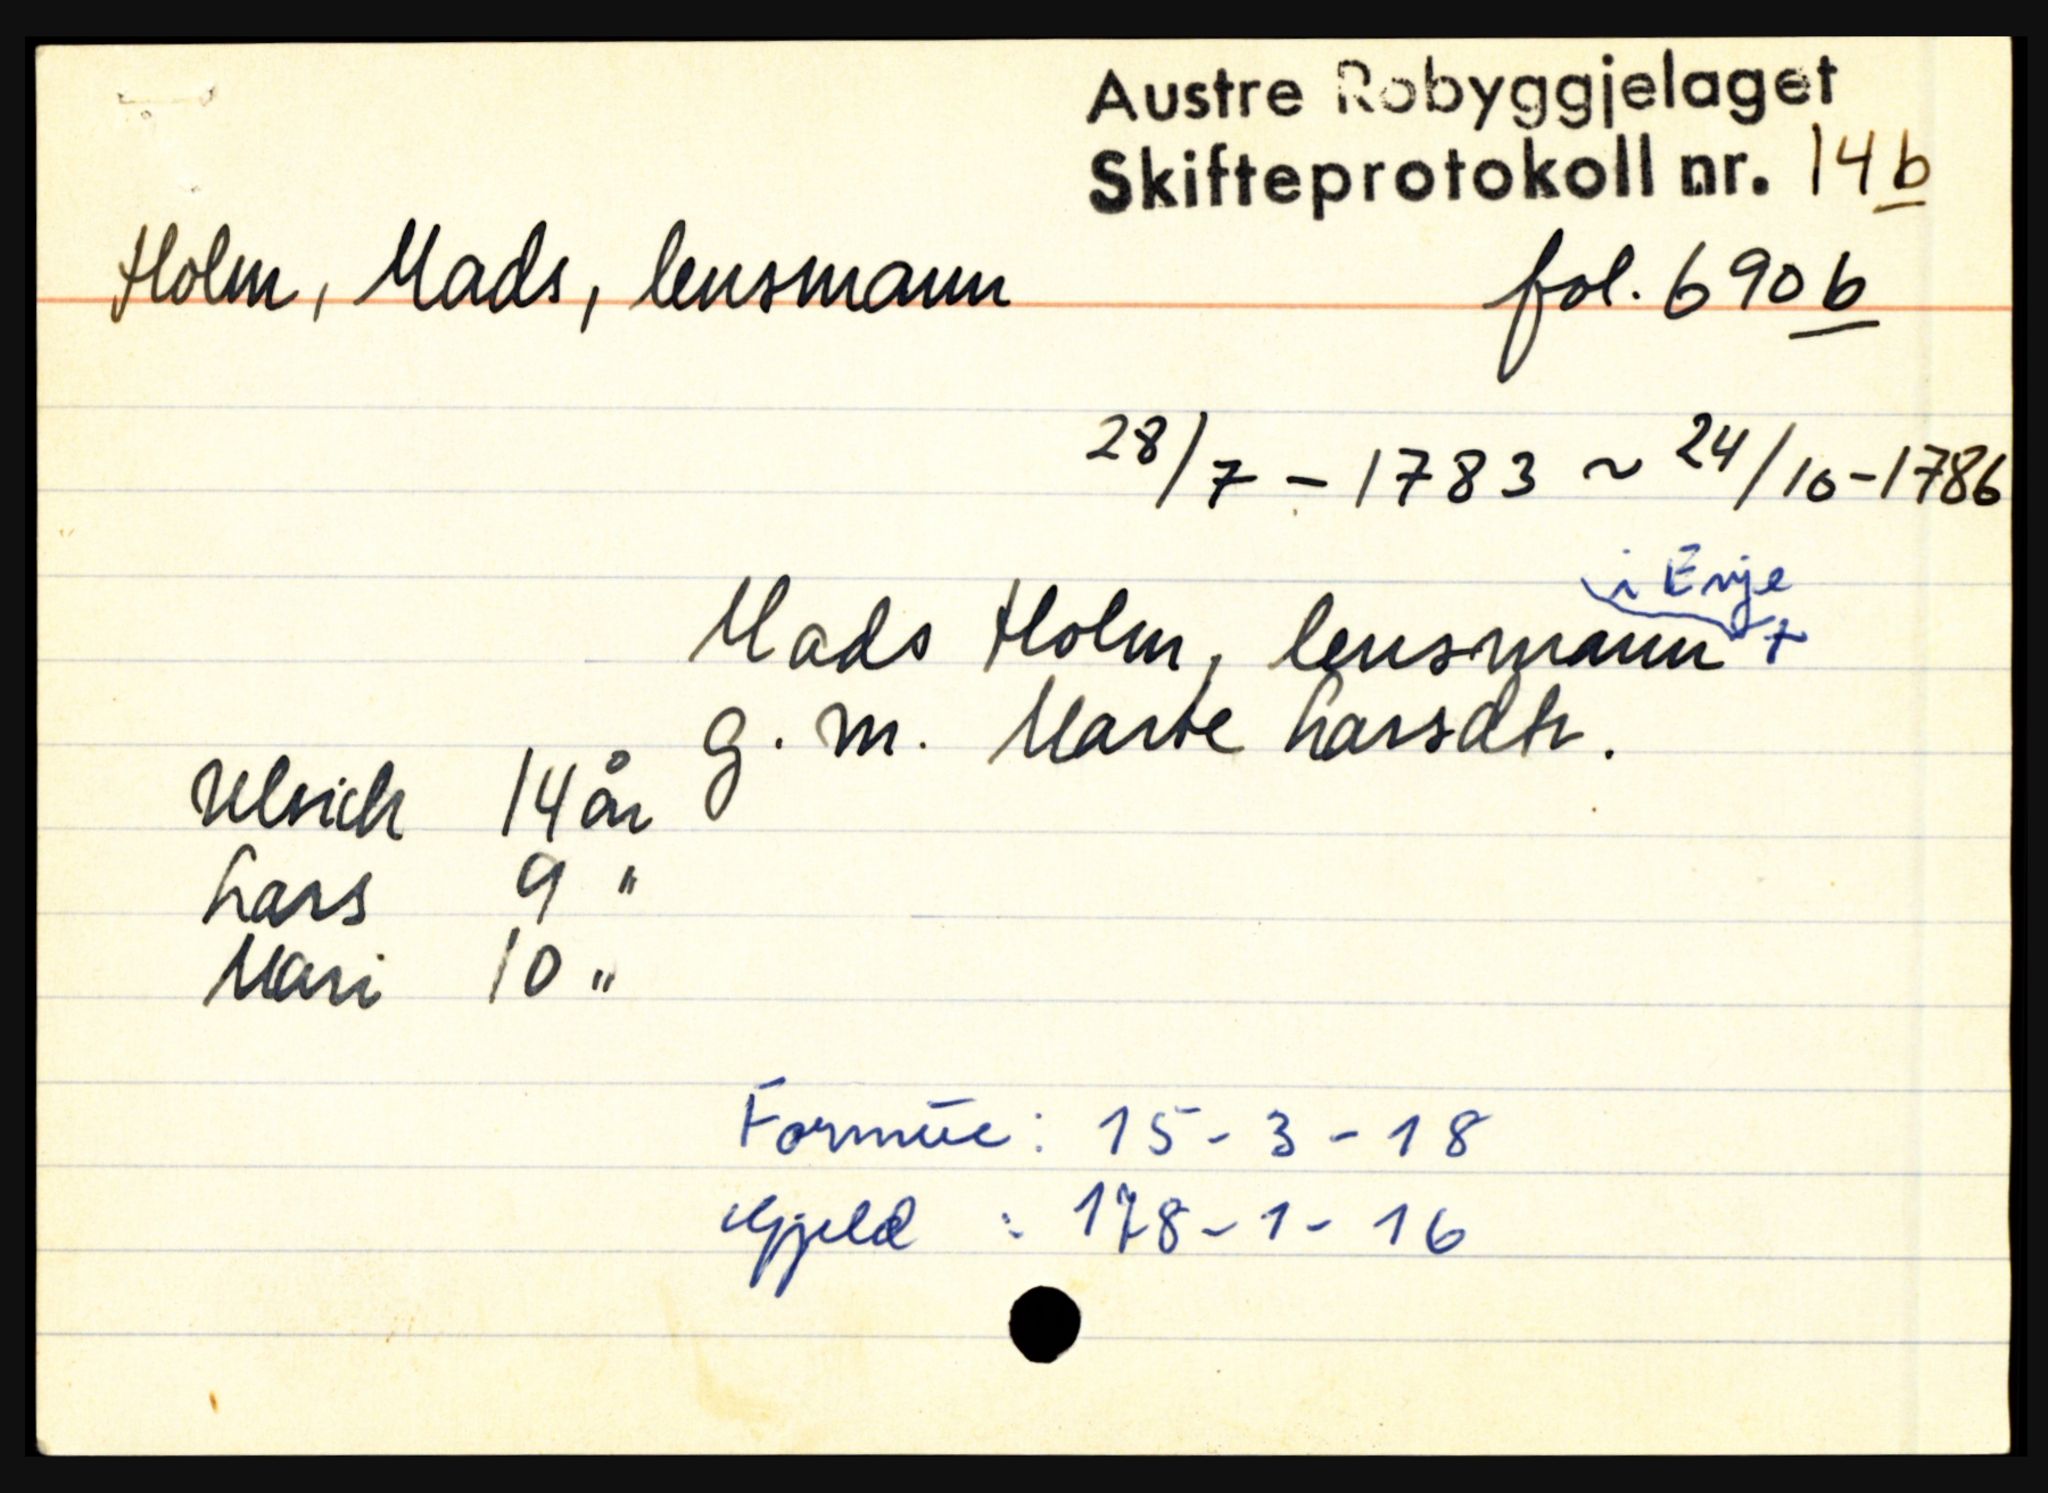 Austre Robyggjelaget
Skifteprotokoll nr. 14b
Holm, Mads, lensmann fol. 690b
28/7 - 1783 ~ 24/10-1786
i Evje
Mads Holm, lensmann +
g. m. Marte Larsdtr.
Ulrich 14 år
Lars 9 "
Mari 10 "
Formue: 15-3-18
Gjeld : 178-1-16